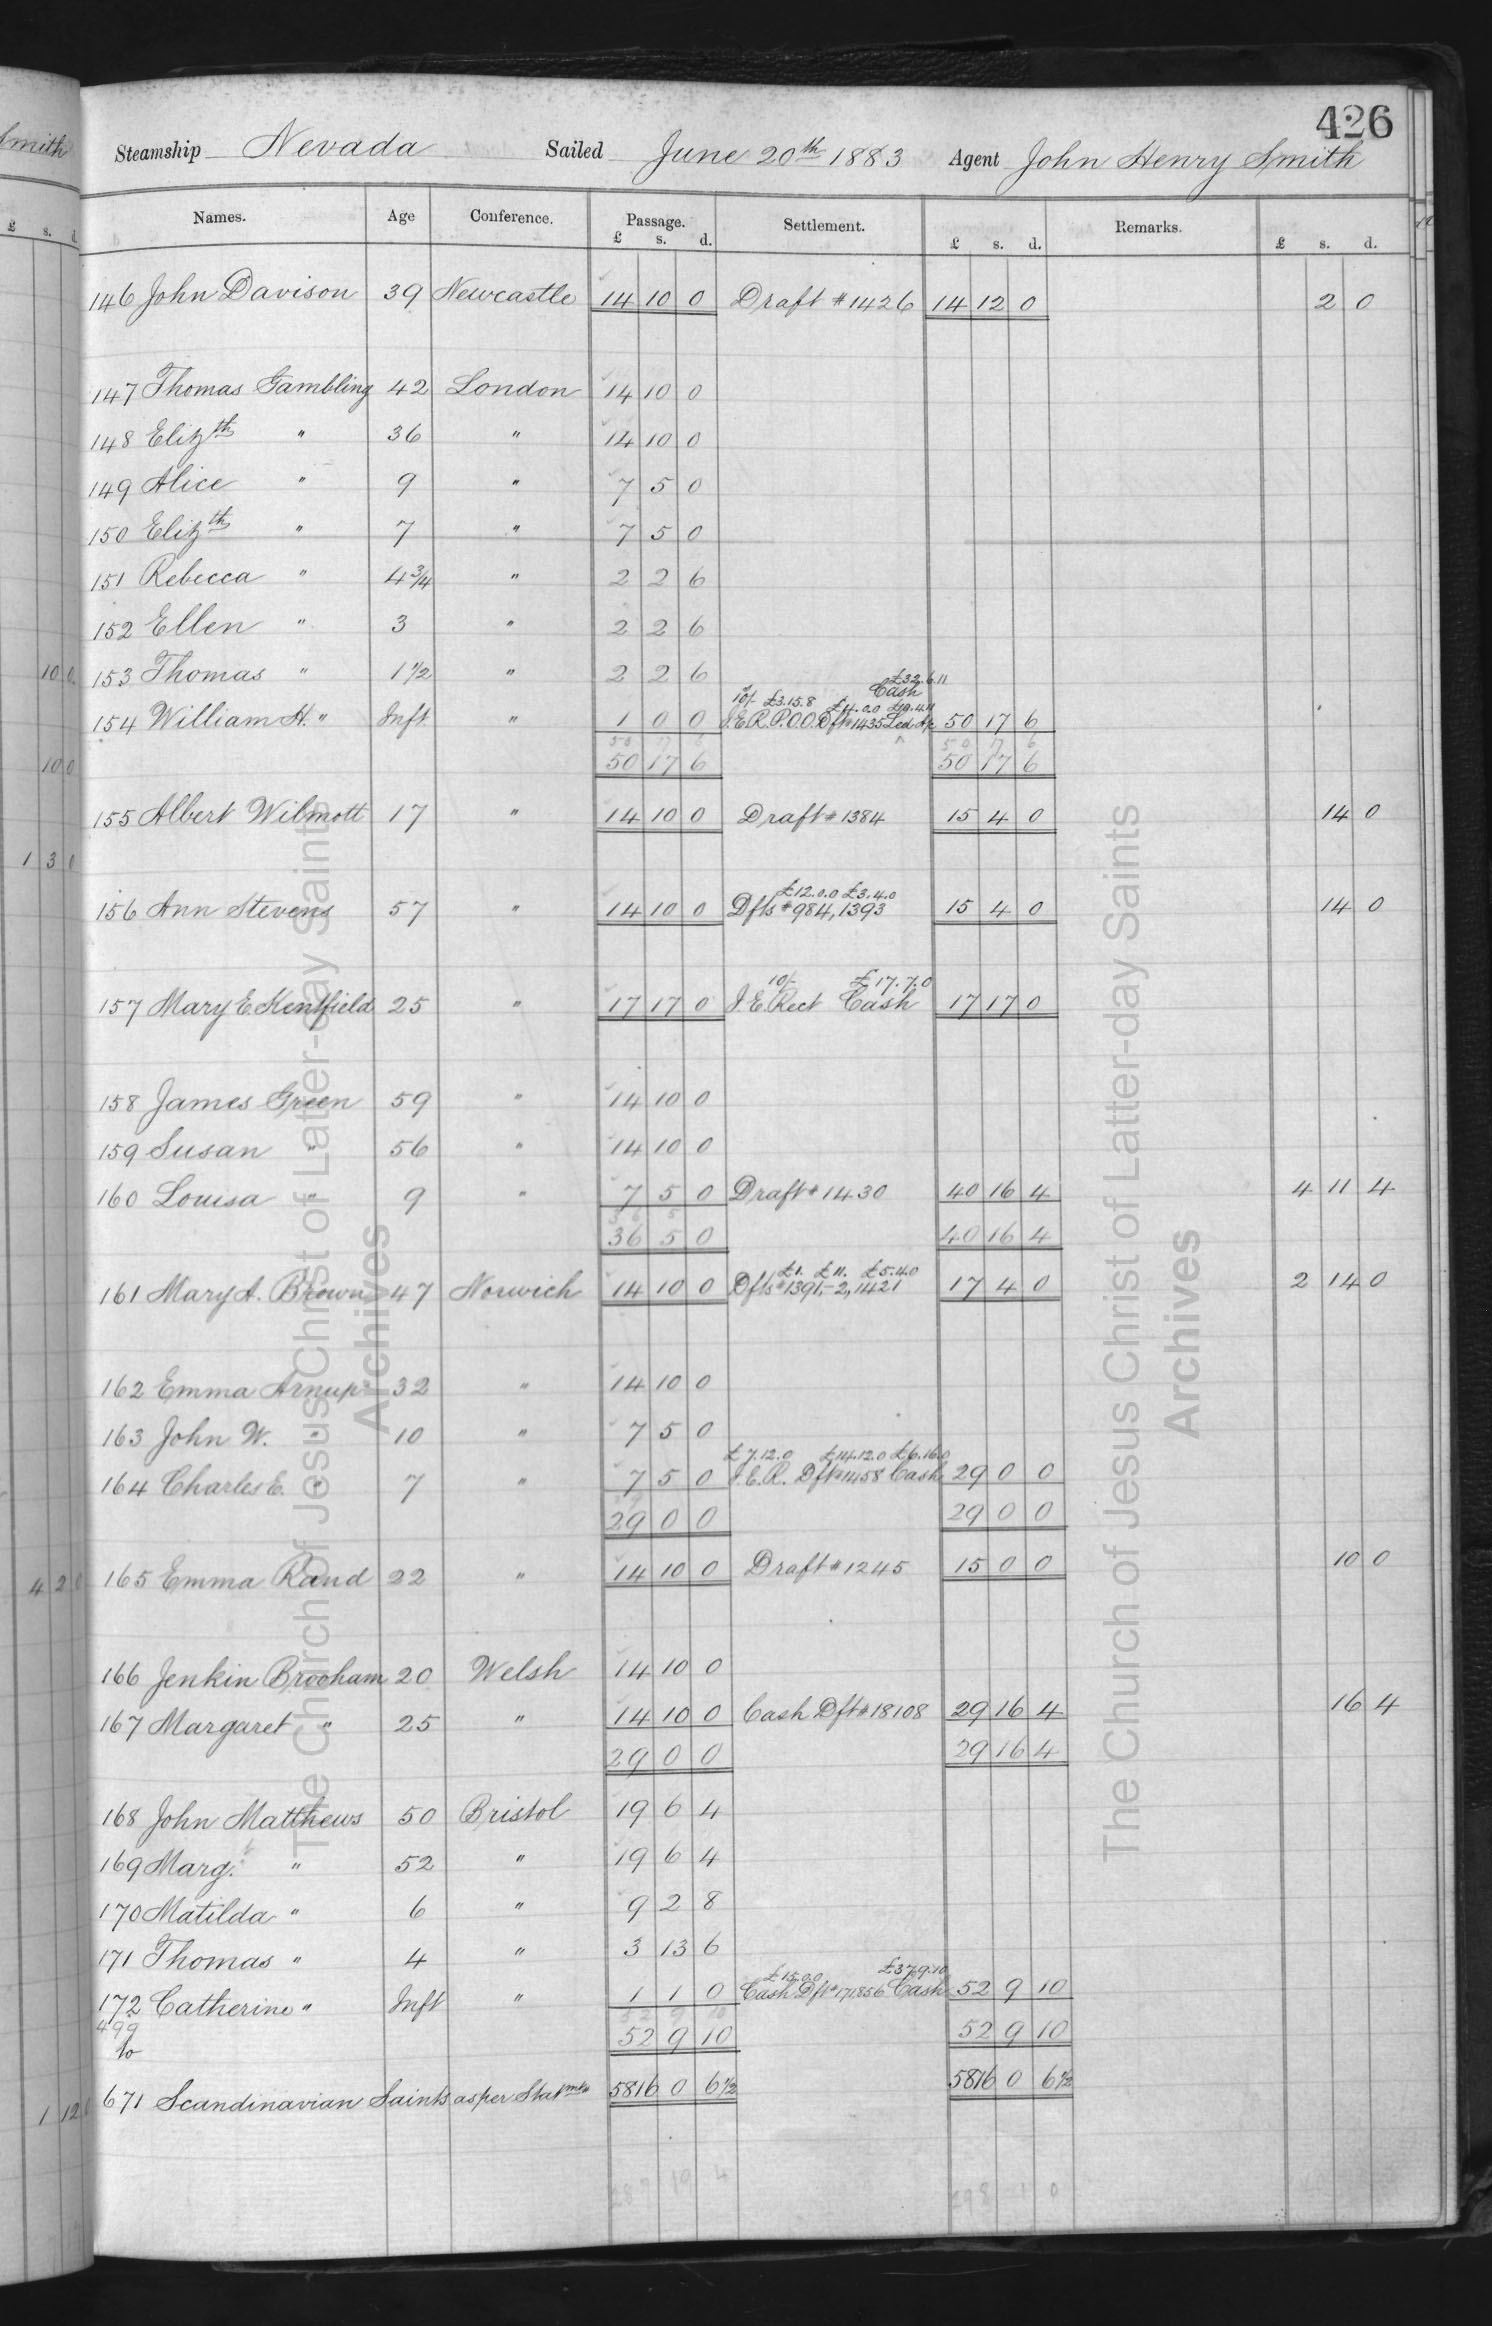 426
Steamship Nevada Sailed June 20th 1883 Agent John Henry Smith
Names. Age Conference. Passage. Settlement. Remarks.
£ s. d. £ s. d. £ s. d.
146 John Davison 39 Newcastle 14 10 0 Draft # 1426 14 12 0 2 0
147 Thomas Gambling 42 London 14 10 0
148 Elizth " 36 " 14 10 0
149 Alice " 9 " 7 5 0
150 Elizth " 7 " 7 5 0
151 Rebecca " 4 3/4 " 2 2 6
152 Ellen " 3 " 2 2 6
153 Thomas " 1 1/2 " 2 2 6
£32.6.11
10/- £3.15.8 £4.0.0 Cash
154 William H. " Inft " 1 0 0 J.E.R. P.O.O. Dft # 1435 50 17 6
50 17 6 50 17 6
155 Albert Wilmott 17 " 14 10 0 Draft # 1384 15 4 0 14 0
£12.0.0 £3.4.0
156 Ann Stevens 57 " 14 10 0 Dfts # 984, 1393 15 4 0 14 0
10/- £17.7.0
157 Mary E. Kentfield 25 " 17 17 0 J.E. Rect Cash 17 17 0
158 James Green 59 " 14 10 0
159 Susan " 56 " 14 10 0
160 Louisa " 9 " 7 5 0 Draft # 1430 40 16 4 4 11 4
36 5 0 40 16 4
£1. £11. £5.4.0
161 Mary A. Brown 47 Norwich 14 10 0 Dfts # 1391,-2, 1421 17 4 0 2 14 0
162 Emma Arnup 32 " 14 10 0
163 John W. " 10 " 7 5 0
£7.12.0 £14.12.0 £6.16.0
164 Charles E. " 7 " 7 5 0 J.E.R. Dft # 1458 Cash 29 0 0
29 0 0 29 0 0
165 Emma Rand 22 " 14 10 0 Draft # 1245 15 0 0 10 0
166 Jenkin Brooham 20 Welsh 14 10 0
167 Margaret " 25 " 14 10 0 Cash Dft # 18108 29 16 4 16 4
29 0 0 29 16 4
168 John Matthews 50 Bristol 19 6 4
169 Marg. " 52 " 19 6 4
170 Matilda " 6 " 9 2 8
171 Thomas " 4 " 3 13 6
£15.0.0 £37.9.10
172 Catherine " Inft " 1 1 0 Cash Dft # 171856 Cash 52 9 10
499 52 9 10 52 9 10
to
671 Scandinavian Saints as per Statmts 5816 0 6 1/2 5816 0 6 1/2
The Church of Jesus Christ of Latter-day Saints
Archives
The Church of Jesus Christ of Latter-day Saints
Archives
Smith
£ s. d.
10 0
10 0
1 3 0
4 2 0
1 12 0